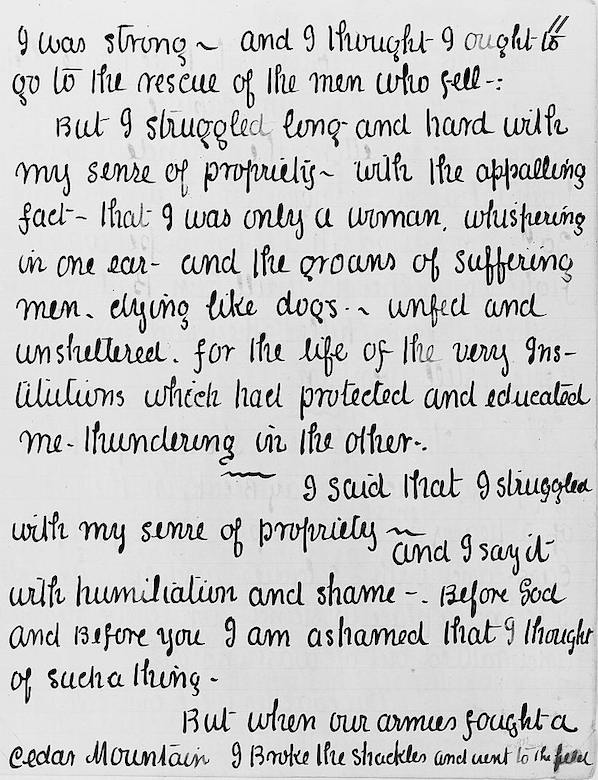 I was strong ~ and I thought I ought to
go to the rescue of the men who fell -:
But I struggled long and hard with
my sense of propriety ~ with the appalling
fact - that I was only a woman, whispering
in one ear - and the groans of suffering
men. dying like dogs. ~ unfed and
unsheltered. for the life of the very Ins-
titutions which had protected and educated
me - thundering in the other -.
I said that I struggled
with my sense of propriety ~
and I say it
with humiliation and shame -. Before God
and Before you I am ashamed that I thought
of such a thing -
But when our armies fought a
Cedar Mountain I Broke the shackles and went to the field